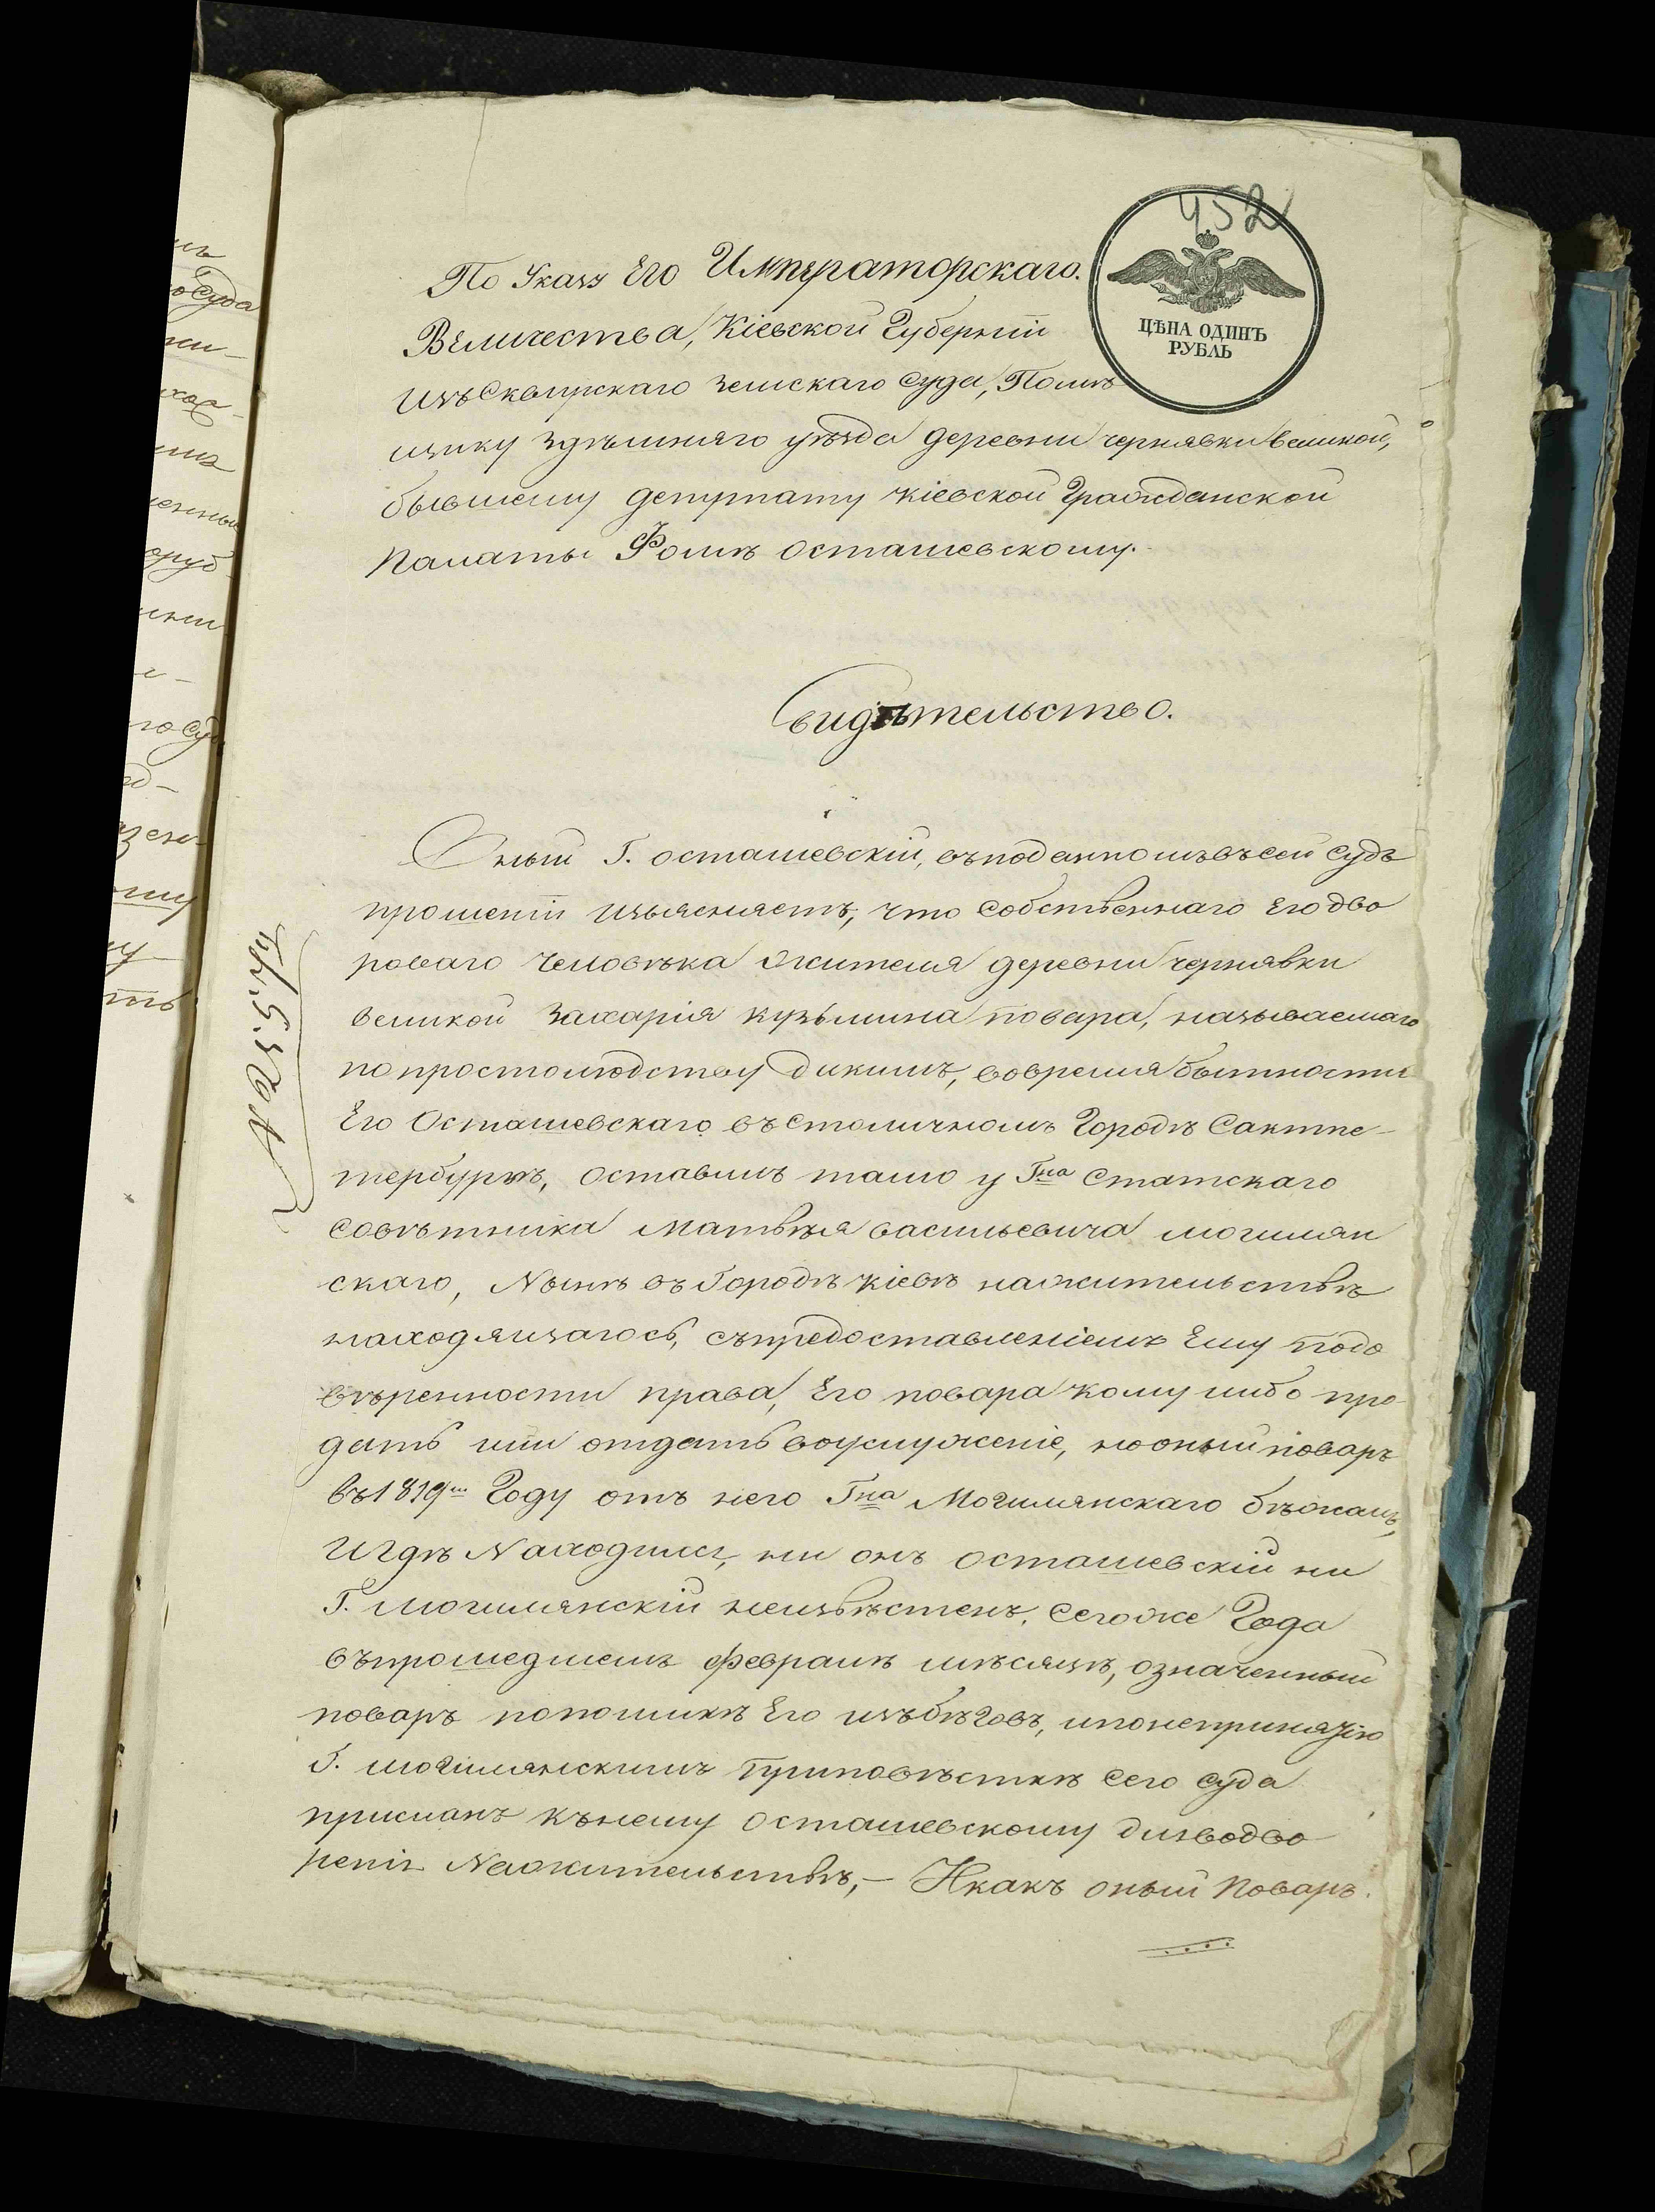 452
ЦѢНА ОДИНЪ
РУБЛЬ
По Указу Его Императорскаго.
Величества, Кіевской Губерніи
изъ Сквирскаго земскаго суда, Помѣ
щику здѣшняго уѣзда деревни чернявки великой,
бывшему депутату кіевской Гражданской
Палаты Ѳомѣ Осташевскому.
Свидѣтельство.
Оный Г. осташевскій, въ поданномъ въ сей судъ
прошеніи изьясняетъ, что собственнаго Его дво
роваго человѣка жителя деревни чернявки
великой Захарія кузьмина повара, называемаго
по простолюдству дикимъ, во время бытности
Его Осташевскаго въ столичномъ Городѣ Санктпе-
тербургѣ, оставилъ тамо у Гна Статскаго
совѣтника Матвѣя васильевича могилян
скаго, Нынѣ въ Городѣ кіевѣ на жительствѣ
находящагось, съ предоставленіемъ Ему по до
вѣренности права, Его повара кому либо про-
дать или отдать во услуженіе, но оный поваръ
въ 1819м Году отъ него Гна Могилянскаго бѣжалъ,
И Гдѣ Находился, ни онъ осташевскій ни
Г. могилянскій неизвѣстенъ, Сего же Года
въ прошедшемъ февралѣ мѣсяцѣ, означенный
поваръ по поимкѣ Его изъ бѣговъ, и по непринятію
Г. могилянскимъ при повѣсткѣ сего суда
присланъ къ нему Осташевскому для водво
ренія На жительствѣ,— И какъ оный Поваръ.